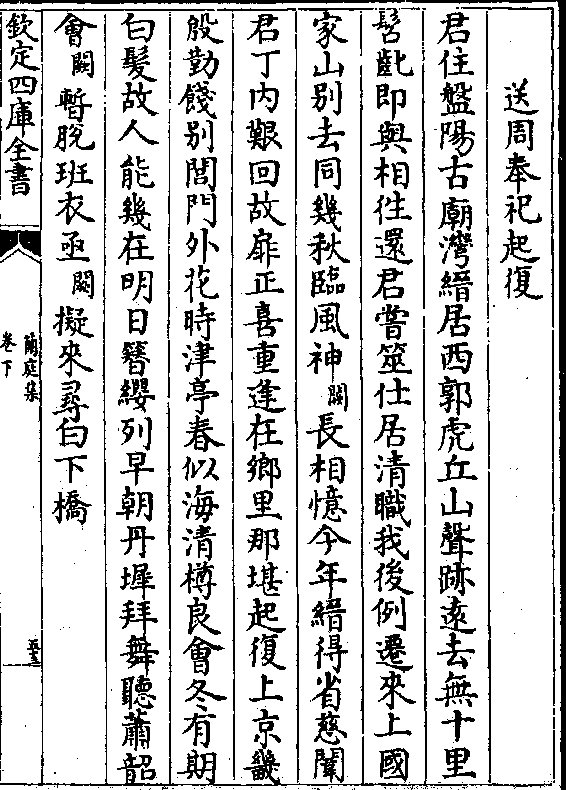 送周奉祀起復
君住盤陽古廟灣縉居西郭虎丘山聲跡遠去無十里
髫齔即與相徃還君嘗筮仕居清職我後例遷來上國
家山別去同幾秋臨風神闕長相憶今年縉得省慈闈
君丁内艱回故扉正喜重逢在鄉里那堪起復上京畿
殷勤餞別閶門外花時津亭春似海清樽良會冬有期
白髪故人能幾在明日簪纓列早朝丹墀拜舞聽蕭韶
會闕暫脱班衣亟闕擬來尋白下橋
欽定四庫全書
蘭庭集
卷下